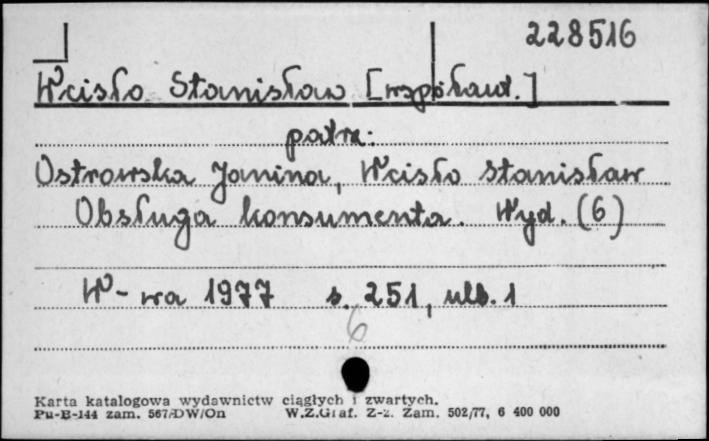 228516
Wcisło Stanisław [współaut.]
patrz:
Ostrowska Janina, Wcisło Stanisław
Obsługa konsumenta. Wyd. (6)
W-wa 1977 s. 251, ulb. 1
6
Karta katalogowa wydawnictw ciągłych i zwartych.
Pu-B-144 zam. 567/DW/On W.Z.Graf. Z-z. Zam. 502/77, 6 400 000